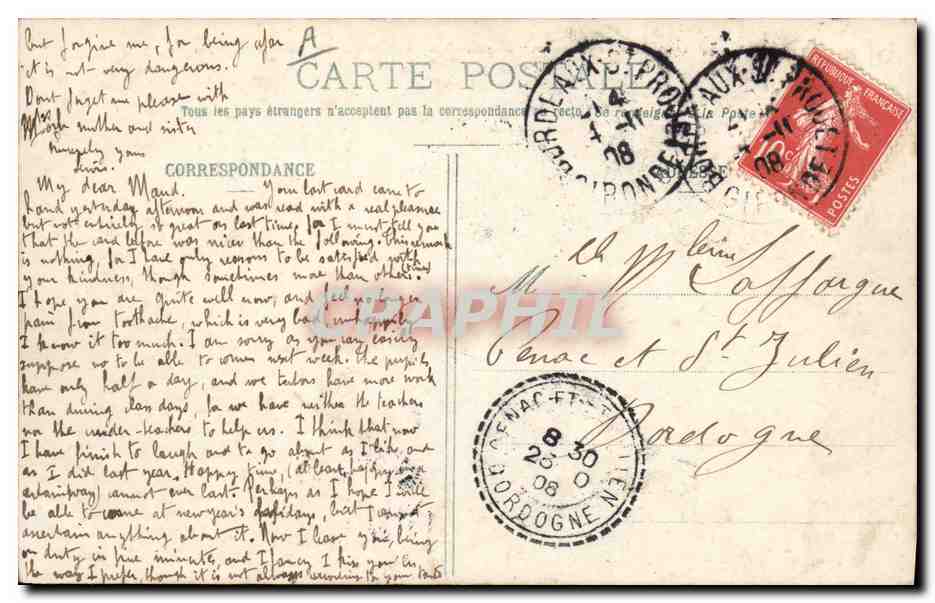 but forgive me, for being afar
it is not very dangerous.
Dont forget me please with
mother and sister
yours
A
CARTE POSTALE
Tous les pays étrangers n'acceptent pas la correspondance au recto. Se renseigner à la Poste
CORRESPONDANCE
My dear Maud. Your last card came to
hand yesterday afternoon and was read with a real pleasure
but not entirely so great as last time, for I must tell you
that the card before was nicer than the following. This remark
is nothing for I have only reasons to be satisfied with
your kindness, though sometimes more than others.
I hope you are quite well now, and feel no longer
pain from toothache, which is very bad, unhappily
I know it too much. I am sorry as you can easily
suppose no to be able to come next week. The pupils
have only half a day, and we tutors have more work
than during class days, for we have neither the teachers
nor the under-teachers to help us. I think that now
I have finish to laugh and to go about as I like, and
as I did last year. Happy time, (at least happy in a
certain way) cannot ever last. Perhaps as I hope I will
be able to come at new year's holidays, but I cannot
ascertain anything about it. Now I leave you, being
on duty in five minutes, and I fancy I kiss you in
the way I prefer, though it is not always to your taste
BORDEAUX-ST-PROJET
4 -11
08
GIRONDE
BORDEAUX-ST-PROJET
-11
08
GIRONDE
REPUBLIQUE FRANÇAISE
10c
POSTES
Laffargue
Cenac et St Julien
Dordogne
CENAC-ET-ST-JULIEN
8 30
08
DORDOGNE
CPAPHIL